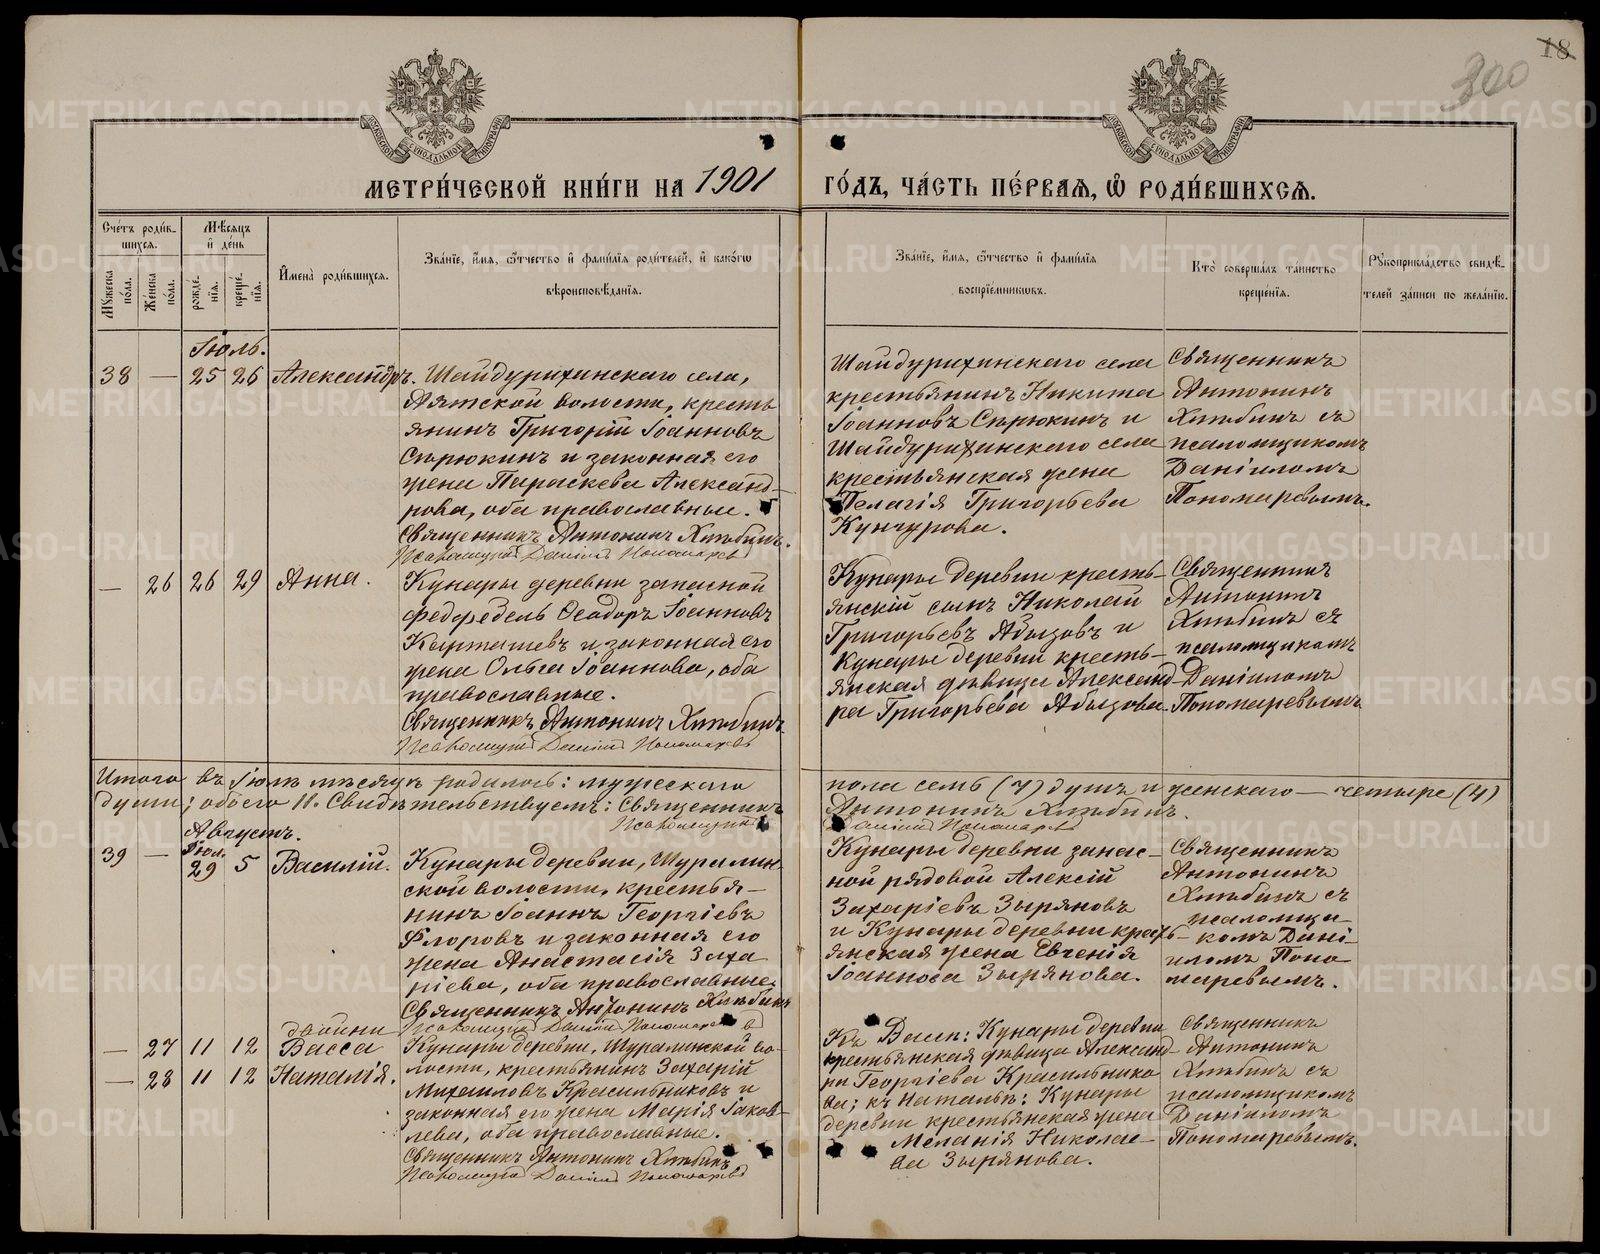 18
300
МЕТРИ́ЧЕСКОЙ КНИ́ГИ НА 1901 ГО́ДЪ, ЧА́СТЬ ПЕ́РВАѦ, Ѽ РОДИ́ВШИХСѦ.
Сче́тъ роди́в-
шихся.
Мѣ́сяцъ
и҆ де́нь
Мꙋ́жеска
по́ла.
Же́нска
по́ла.
рожде́-
нїѧ.
креще́-
нїѧ.
И҆мена̀ роди́вшихся.
Зва́нїе, и҆́мя, ѻ҆́тчество и҆ фами́лїѧ роди́телей, и҆ како́гѡ
вѣроисповѣ́данїѧ.
Зва́нїе, и҆́мя, ѻ҆́тчество и҆ фами́лїѧ
воспрїе́мникѡвъ.
Кто̀ соверша́лъ та́инство
креще́нїѧ.
Рꙋкоприкла́дство свидѣ́-
телей за́писи по жела́нїю.
Іюль.
38 — 25 26 Александръ.
Шайдурихинскаго села,
Аятской волости, кресть
янинъ Григорій Іоанновъ
Сырюкинъ и законная его
жена Параскева Александ-
рова, оба православные.
Священникъ Антонинъ Хлыбинъ.
Псаломщикъ Даніилъ Пономаревъ
Шайдурихинскаго села
крестьянинъ Никита
Іоанновъ Сырюкинъ и
Шайдурихинскаго села
крестьянская жена
Пелагія Григорьева
Кунгурова.
Священникъ
Антонинъ
Хлыбинъ съ
псаломщикомъ
Даніиломъ
Пономаревымъ.
— 26 26 29 Анна.
Кунары деревни запасной
Феодоръ Іоанновъ
Карташевъ и законная его
жена Ольга Іоаннова, оба
православные.
Священникъ Антонинъ Хлыбинъ.
Псаломщикъ Даніилъ Пономаревъ
Кунары деревни кресть-
янскій сынъ Николай
Григорьевъ Абызовъ и
Кунары деревни кресть-
янская дѣвица Александ-
ра Григорьева Абызова.
Священникъ
Антонинъ
Хлыбинъ съ
псаломщикомъ
Даніиломъ
Пономаревымъ
Итого въ Іюлѣ мѣсяцѣ родилось: мужескаго пола семь (7) душъ и женскаго — четыре (4)
души; обоего 11. Свидѣтельствуемъ: Священникъ Антонинъ Хлыбинъ.
Псаломщикъ Даніилъ Пономаревъ
Августъ.
Іюл.
39 — 29 5 Василій.
Кунары деревни, Шуралин-
ской волости, крестья-
нинъ Іоаннъ Георгіевъ
Флоровъ и законная его
жена Анастасія Заха
ріева, оба православные.
Священникъ Антонинъ Хлыбинъ
Псаломщикъ Даніилъ Пономаревъ
Кунары деревни запас-
ной рядовой Алексій
Захаріевъ Зыряновъ
и Кунары деревни кресть-
янская жена Евгенія
Іоаннова Зырянова.
Священникъ
Антонинъ
Хлыбинъ съ
псаломщи-
комъ Дані-
иломъ Поно-
маревымъ.
двойни
— 27 11 12 Васса
— 28 11 12 Наталія.
Кунары деревни, Шуралинской во-
лости, крестьянинъ Захарій
Михаиловъ Красильниковъ и
законная его жена Марія Іаков-
лева, оба православные.
Священникъ Антонинъ Хлыбинъ
Псаломщикъ Даніилъ Пономаревъ
Къ Васс: Кунары деревни
крестьянская дѣвица Александ-
ра Георгіева Красильнико
ва; къ Натальѣ: Кунары
деревни крестьянская жена
Меланія Николае-
ва Зырянова.
Священникъ
Антонинъ
Хлыбинъ съ
псаломщикомъ
Даніиломъ
Пономаревымъ.
METRIKI.GASO-URAL.RU